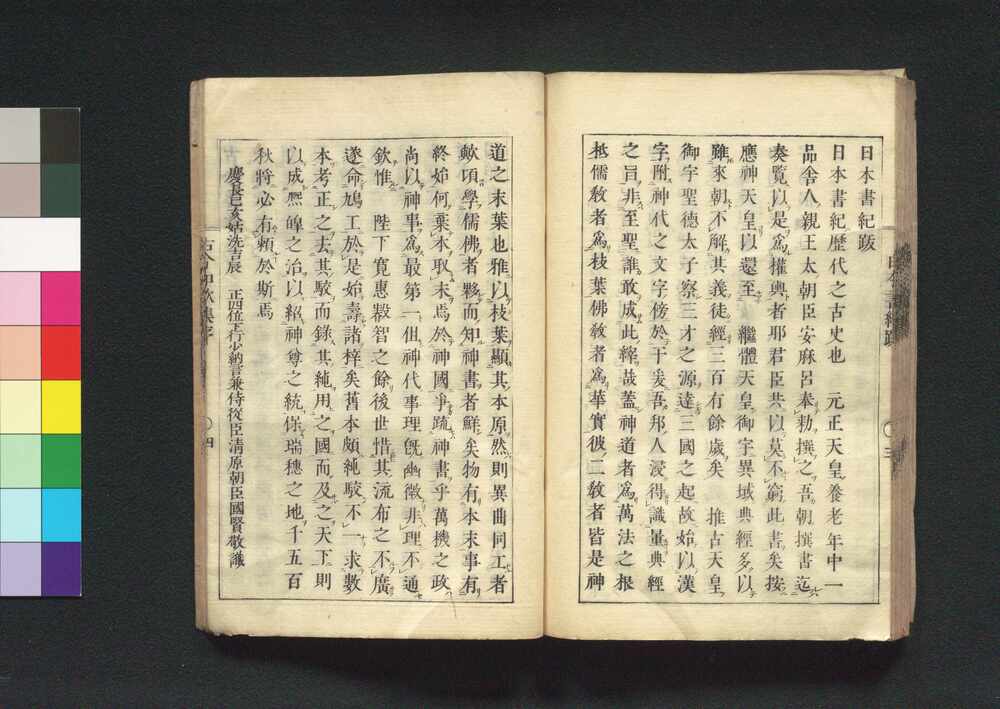 日本書紀跋
日本書紀歴代之古史也　元正天皇養老年中一
品舎人親王太朝臣安麻呂奉勅撰之吾朝撰書迄
奏覧以是爲權輿者耶君臣共以莫不窮此書矣按
應神天皇以還至　繼體天皇御宇異域典經多以
雖來朝不解其義徒經三百有餘歳矣　推古天皇
御宇聖德太子察三才之源達三國之起故始以漢
字附神代之文字傍於于爰吾邦人浸得識量典經
之旨非至聖誰敢成此縡哉蓋神道者爲萬法之根
柢儒敎者爲枝葉佛敎者爲華實彼二敎者皆是神
道之末葉也雅以枝葉顯其本原然則異曲同工者
歟頃學儒佛者夥而知神書者鮮矣物有本末事有
終始何棄本取末焉於神國爭疏神書乎萬機之政
尚以神事爲最第一但神代事理既幽微非理不通
欽惟　陛下寛惠叡智之餘後世惜其流布之不廣
遂命鳩工於是始壽諸梓矣舊本頗純駁不一求數
本考正之去其駁而錄其純用之國而及之天下則
以成熈皥之治以紹神尊之統保瑞穗之地千五百
秋將必有賴於斯焉
慶長己亥姑洗吉辰　正四位下行少納言兼侍從臣淸原朝臣國賢敬識
三
四